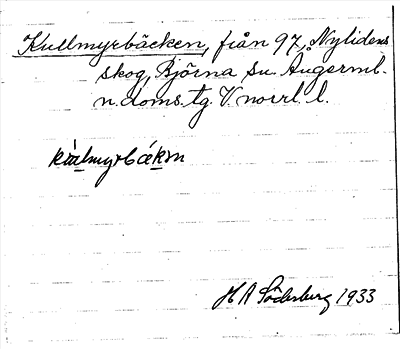 Kullmyrbäcken, från 97, Nylidens
skog, Björna sn. Ångerml.
n. doms. tg. V. norrl. l.
H A Söderberg 1933